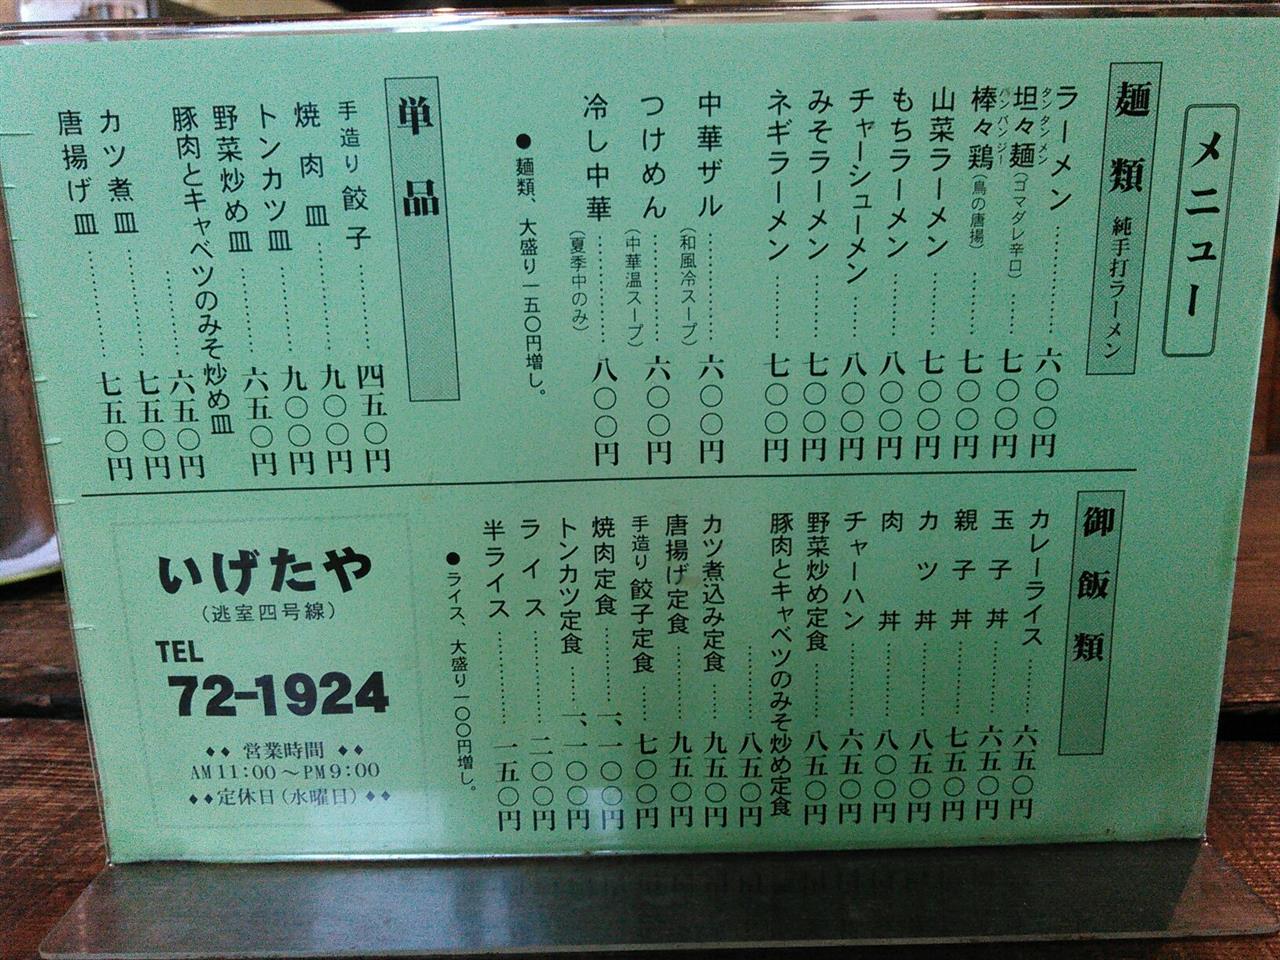 メニュー
麺類 純手打ラーメン
ラーメン…………六〇〇円
坦々麺(ゴマダレ辛口)……七〇〇円
タンタンメン
棒々鶏(鳥の唐揚)……七〇〇円
バンバンジー
山菜ラーメン……七〇〇円
もちラーメン……八〇〇円
チャーシューメン……八〇〇円
みそラーメン……七〇〇円
ネギラーメン……七〇〇円
中華ザル…………六〇〇円
(和風冷スープ)
つけめん…………六〇〇円
(中華温スープ)
冷し中華…………八〇〇円
(夏季中のみ)
●麺類、大盛り一五〇円増し。
単品
手造り餃子………四五〇円
焼肉皿………九〇〇円
トンカツ皿………九〇〇円
野菜炒め皿………六五〇円
豚肉とキャベツのみそ炒め皿
………六五〇円
カツ煮皿………七五〇円
唐揚げ皿………七五〇円
御飯類
カレーライス……六五〇円
玉子丼……六五〇円
親子丼……七五〇円
カツ丼……八五〇円
肉丼……八〇〇円
チャーハン……六五〇円
野菜炒め定食……八五〇円
豚肉とキャベツのみそ炒め定食
……八五〇円
カツ煮込み定食……九五〇円
唐揚げ定食……九五〇円
手造り餃子定食……七〇〇円
焼肉定食……一、一〇〇円
トンカツ定食……一、一〇〇円
ライス……二〇〇円
半ライス……一五〇円
●ライス、大盛り一〇〇円増し。
いげたや
(逃室四号線)
TEL
72-1924
♦♦ 営業時間 ♦♦
AM11:00〜PM9:00
♦♦定休日(水曜日)♦♦